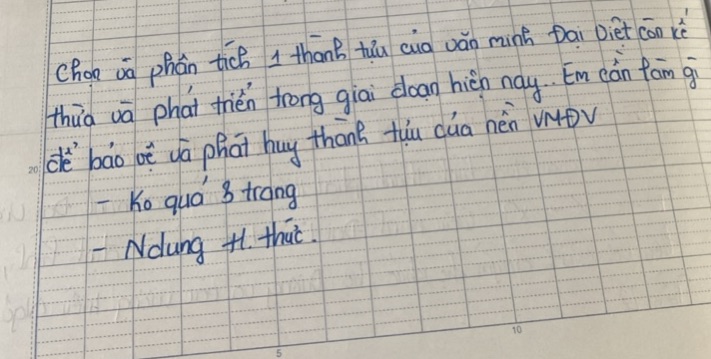 Chọn và phân tích 1 thành tựu của văn minh Đại Việt còn kế
thừa và phát triển trong giai đoạn hiện nay. Em cần làm gì
để bảo vệ và phát huy thành tựu của nền VMĐV
- Ko quá 3 trang
- Ndung H. thức.
20
5
10